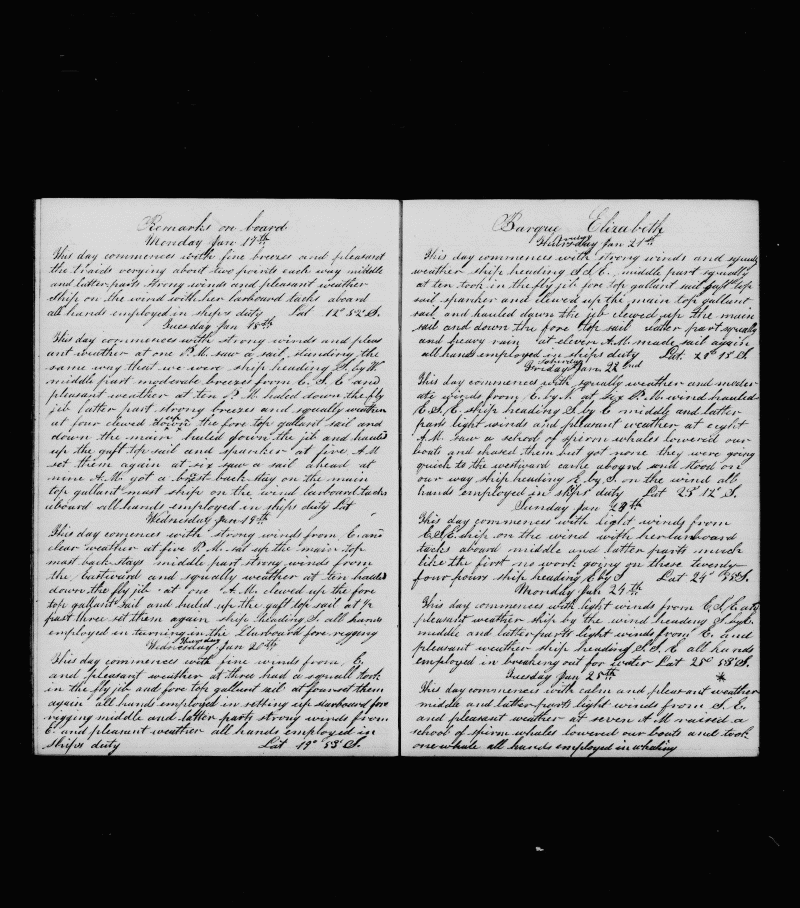 Remarks on board
Monday Jan 17th
This day commences with fine breezes and pleasant
the traids verying about two points each way middle
and latter parts strong winds and pleasant weather
ship on the wind with her larboard tacks aboard
all hands employed in ships duty Lat 12° 52' S.
Tuesday Jan 18th
This day commences with strong winds and pleas
ant weather at one P.M. saw a sail, standing the
same way that we were ship heading S. by W.
middle part moderate breezes from E. S. E and
pleasant weather at ten P. M. huled down the fly
jib latter part strong breezes and squally weather
at four clewed up the fore top gallant sail and
down the main huled down the jib and hauled
up the gaft top sail and spanker at five A.M
set them again at six saw a sail ahead at
nine A. M. got a brest back stay on the main
top gallant mast ship on the wind larboard tacks
aboard all hands employed in ships duty Lat
Wednesday Jan 19th
This day comences with strong winds from E. and
clear weather at five P. M. sat up the main top
mast back stays middle part strong winds from
the eastward and squally weather at ten hauled
down the fly jib at one A. M. clewed up the fore
top gallant sail and huled up the gaft top sail at ½
past three set them again ship heading S. all hands
employed in turning in the Starboard fore rigging
Thursday
Wednesday Jan 20th
This day commences with fine winds from E.
and pleasant weather at three had a squall took
in the fly jib and fore top gallant sail at four set them
again all hands employed in setting up starboard fore
rigging middle and latter parts strong winds from
E. and pleasant weather all hands employed in
ships duty Lat 19° 53' S.
Barque Elizabeth
Friday
Thursday Jan 21st
This day commences with strong winds and squaly
weather ship heading S. S. E. middle part squally
at ten took in the fly jib fore top gallant sail gaft top
sail spanker and clewed up the main top gallant
sail and hauled down the jib clewed up the main
sail and down the fore top sail latter part squally
and heavy rain at eleven A.M. made sail again
all hands employed in ships duty Lat. 20° 15' S.
Saturday
Friday Jan. 22nd
This day commences with squally weather and moder
ate winds from E. by N. at six P. M. wind hauled
E. S. E. ship heading S. by E middle and latter
parts light winds and pleasant weather at eight
A. M. saw a school of spirm whales lowered our
boats and chased them but got none they were going
quick to the westward came aboard and stood on
our way ship heading E. by S. on the wind all
hands employed in ships duty Lat 23° 12' S.
Sunday Jan 23th
This day commences with light winds from
E.S.E. ship on the wind with her larboard
tacks aboard middle and latter parts much
like the first no work going on these twenty
four hours ship heading E by S Lat 24° 35' S.
Monday Jan 24th
This day commences with light winds from E.S.E. and
pleasant weather ship by the wind heading S. by E.
middle and latter parts light winds from E. and
pleasant weather ship heading S. S. E all hands
employed in breaking out for water Lat 25° 53' S.
Tuesday Jan 25th *
This day commences with calm and pleasant weather
middle and latter parts light winds from S. E.
and pleasant weather at seven A.M raised a
school of spirm whales lowered our boats and took
one whale all hands employed in whaling